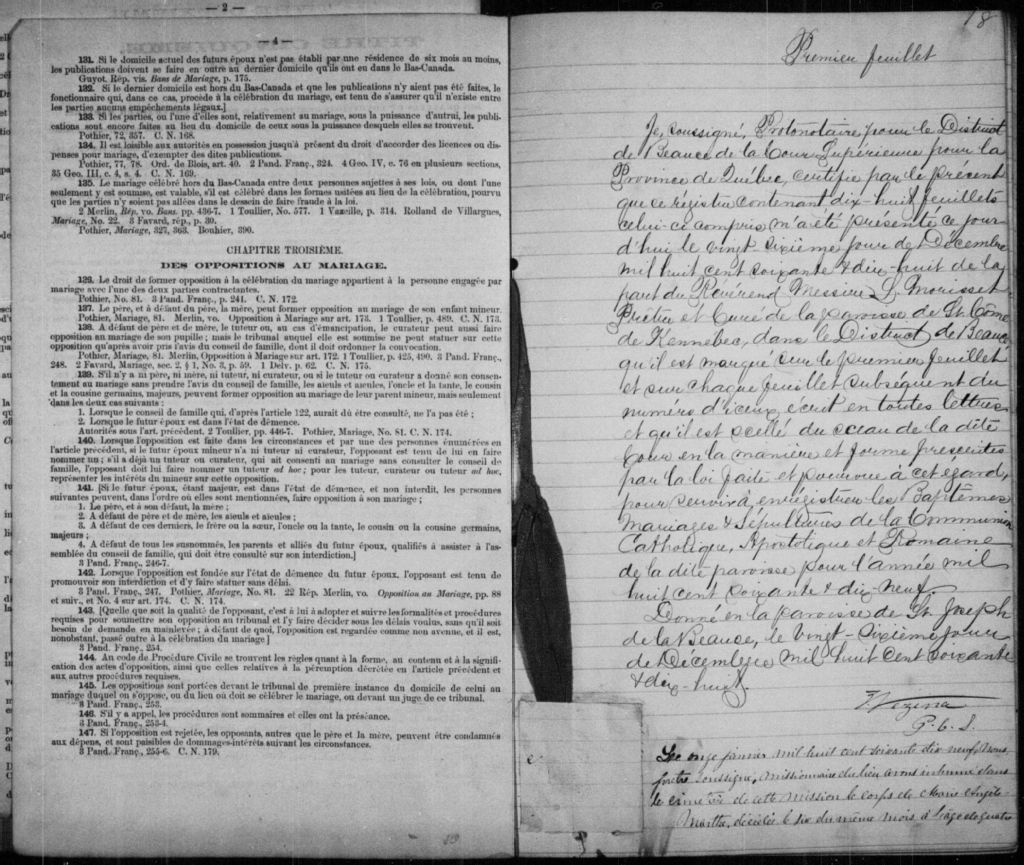 — 2 —
— 4 —
131. Si le domicile actuel des futurs époux n'est pas établi par une résidence de six mois au moins,
les publications doivent se faire en outre au dernier domicile qu'ils ont eu dans le Bas-Canada.
Guyot, Rép. vis. Bans de Mariage, p. 175.
132. Si le dernier domicile est hors du Bas-Canada et que les publications n'y aient pas été faites, le
fonctionnaire qui, dans ce cas, procède à la célébration du mariage, est tenu de s'assurer qu'il n'existe entre
les parties aucuns empêchements légaux.]
133. Si les parties, ou l'une d'elles sont, relativement au mariage, sous la puissance d'autrui, les publi-
cations sont encore faites au lieu du domicile de ceux sous la puissance desquels elles se trouvent.
Pothier, 72, 357. C. N. 168.
134. Il est loisible aux autorités en possession jusqu'à présent du droit d'accorder des licences ou dis-
penses pour mariage, d'exempter des dites publications.
Pothier, 77, 78. Ord. de Blois, art. 40. 2 Pand. Franç., 324. 4 Geo. IV, c. 76 en plusieurs sections,
35 Geo. III, c. 4, s. 4. C. N. 169.
135. Le mariage célébré hors du Bas-Canada entre deux personnes sujettes à ses lois, ou dont l'une
seulement y est soumise, est valable, s'il est célébré dans les formes usitées au lieu de la célébration, pourvu
que les parties n'y soient pas allées dans le dessein de faire fraude à la loi.
2 Merlin, Rép. vo. Bans. pp. 436-7. 1 Toullier, No. 577. 1 Vazeille, p. 314. Rolland de Villargues,
Mariage, No. 22. 3 Favard, rép., p. 39.
Pothier, Mariage, 327, 363. Bouhier, 390.
CHAPITRE TROISIÈME.
DES OPPOSITIONS AU MARIAGE.
136. Le droit de former opposition à la célébration du mariage appartient à la personne engagée par
mariage avec l'une des deux parties contractantes.
Pothier, No. 81. 3 Pand. Franç., p. 241. C. N. 172.
137. Le père, et à défaut du père, la mère, peut former opposition au mariage de son enfant mineur.
Pothier, Mariage, 81. Merlin, vo. Opposition à Mariage sur art. 173. 1 Toullier, p. 489. C. N. 173.
138. A défaut de père et de mère, le tuteur ou, au cas d'émancipation, le curateur peut aussi faire
opposition au mariage de son pupille ; mais le tribunal auquel elle est soumise ne peut statuer sur cette
opposition qu'après avoir pris l'avis du conseil de famille, dont il doit ordonner la convocation.
Pothier, Mariage, 81. Merlin, Opposition à Mariage sur art. 172. 1 Toullier, p. 425, 490. 3 Pand. Franç.,
248. 2 Favard, Mariage, sec. 2, § 1, No. 3, p. 59. 1 Delv. p. 62. C. N. 175.
139. S'il n'y a ni père, ni mère, ni tuteur, ni curateur, ou si le tuteur ou curateur a donné son consen-
tement au mariage sans prendre l'avis du conseil de famille, les aïeuls et aïeules, l'oncle et la tante, le cousin
et la cousine germains, majeurs, peuvent former opposition au mariage de leur parent mineur, mais seulement
dans les deux cas suivants :
1. Lorsque le conseil de famille qui, d'après l'article 122, aurait dû être consulté, ne l'a pas été ;
2. Lorsque le futur époux est dans l'état de démence.
Autorités sous l'art. précédent. 2 Toullier, pp. 446-7. Pothier, Mariage, No. 81. C. N. 174.
140. Lorsque l'opposition est faite dans les circonstances et par une des personnes énumérées en
l'article précédent, si le futur époux mineur n'a ni tuteur ni curateur, l'opposant est tenu de lui en faire
nommer un ; s'il a déjà un tuteur ou curateur, qui ait consenti au mariage sans consulter le conseil de
famille, l'opposant doit lui faire nommer un tuteur ad hoc ; pour les tuteur, curateur ou tuteur ad hoc,
représenter les intérêts du mineur sur cette opposition.
141. [Si le futur époux, étant majeur, est dans l'état de démence, et non interdit, les personnes
suivantes peuvent, dans l'ordre où elles sont mentionnées, faire opposition à son mariage ;
1. Le père, et à son défaut, la mère ;
2. A défaut de père et de mère, les aïeuls et aïeules ;
3. A défaut de ces derniers, le frère ou la sœur, l'oncle ou la tante, le cousin ou la cousine germains,
majeurs ;
4. A défaut de tous les susnommés, les parents et alliés du futur époux, qualifiés à assister à l'as-
semblée du conseil de famille, qui doit être consulté sur son interdiction.]
3 Pand. Franç., 246-7.
142. Lorsque l'opposition est fondée sur l'état de démence du futur époux, l'opposant est tenu de
promouvoir son interdiction et d'y faire statuer sans délai.
3 Pand. Franç., 247. Pothier, Mariage, No. 81. 22 Rép. Merlin, vo. Opposition au Mariage, pp. 88
et suiv., et No. 4 sur art. 174. C. N. 174.
143. [Quelle que soit la qualité de l'opposant, c'est à lui à adopter et suivre les formalités et procédures
requises pour soumettre son opposition au tribunal et l'y faire décider sous les délais voulus, sans qu'il soit
besoin de demande en mainlevée ; à défaut de quoi, l'opposition est regardée comme non avenue, et il est,
nonobstant, passé outre à la célébration du mariage]
3 Pand. Franç., 254.
144. Au code de Procédure Civile se trouvent les règles quant à la forme, au contenu et à la signifi-
cation des actes d'opposition, ainsi que celles relatives à la péremption décrétée en l'article précédent et
aux autres procédures requises.
145. Les oppositions sont portées devant le tribunal de première instance du domicile de celui au
mariage duquel on s'oppose, ou du lieu où doit se célébrer le mariage, ou devant un juge de ce tribunal.
3 Pand. Franç., 253.
146. S'il y a appel, les procédures sont sommaires et elles ont la préséance.
3 Pand. Franç., 253-4.
147. Si l'opposition est rejetée, les opposants, autres que le père et la mère, peuvent être condamnés
aux dépens, et sont paisibles de dommages-intérêts suivant les circonstances.
3 Pand. Franç., 255-6. C. N. 179.
18
Premier feuillet
Je, soussigné, Protonotaire, pour le District
de Beauce de la Cour Supérieure pour la
Province de Québec, certifie par le présent
que ce régistre contenant dix-huit feuillets
celui-ci compris m'a été présenté ce jour
d'hui le vingt-sixième jour de Décembre
mil huit cent soixante & dix-huit de la
part du Révérend Messire L. Morisset
Prêtre et Curé de la paroisse de St. Côme
de Kennebec, dans le District de Beauce
qu'il est marqué sur le premier feuillet
et sur chaque feuillet subséquent du
numéro d'iceux, écrit en toutes lettres
et qu'il est scellé du sceau de la dite
Cour en la manière et forme prescrites
par la loi faite et pourvue à cet égard,
pour servir à enregistrer les Baptêmes
Mariages & Sépultures de la Communion
Catholique, Apostolique et Romaine
de la dite paroisse pour l'année mil
huit cent soixante & dix-neuf.
Donné en la paroisse de St. Joseph
de la Beauce, le vingt-sixième jour
de Décembre mil huit cent soixante
& dix-huit.
Vezina
P. C. S.
Le onze janvier mil huit cent soixante dix neuf, nous,
prêtre soussigné, missionnaire du lieu avons inhumé dans
le cimetière de cette mission le corps de Marie
Martha, décédée le six du même mois à l'âge de quatre